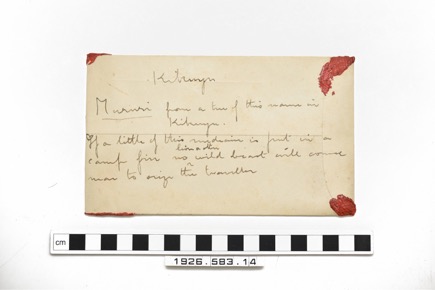 Kikuyu
Mururi from a tree of this name in
Kikuyu.
If a little of this medicine is put in a
camp fire no wild beast will come
near to seize the traveller
cm
1926.583.14